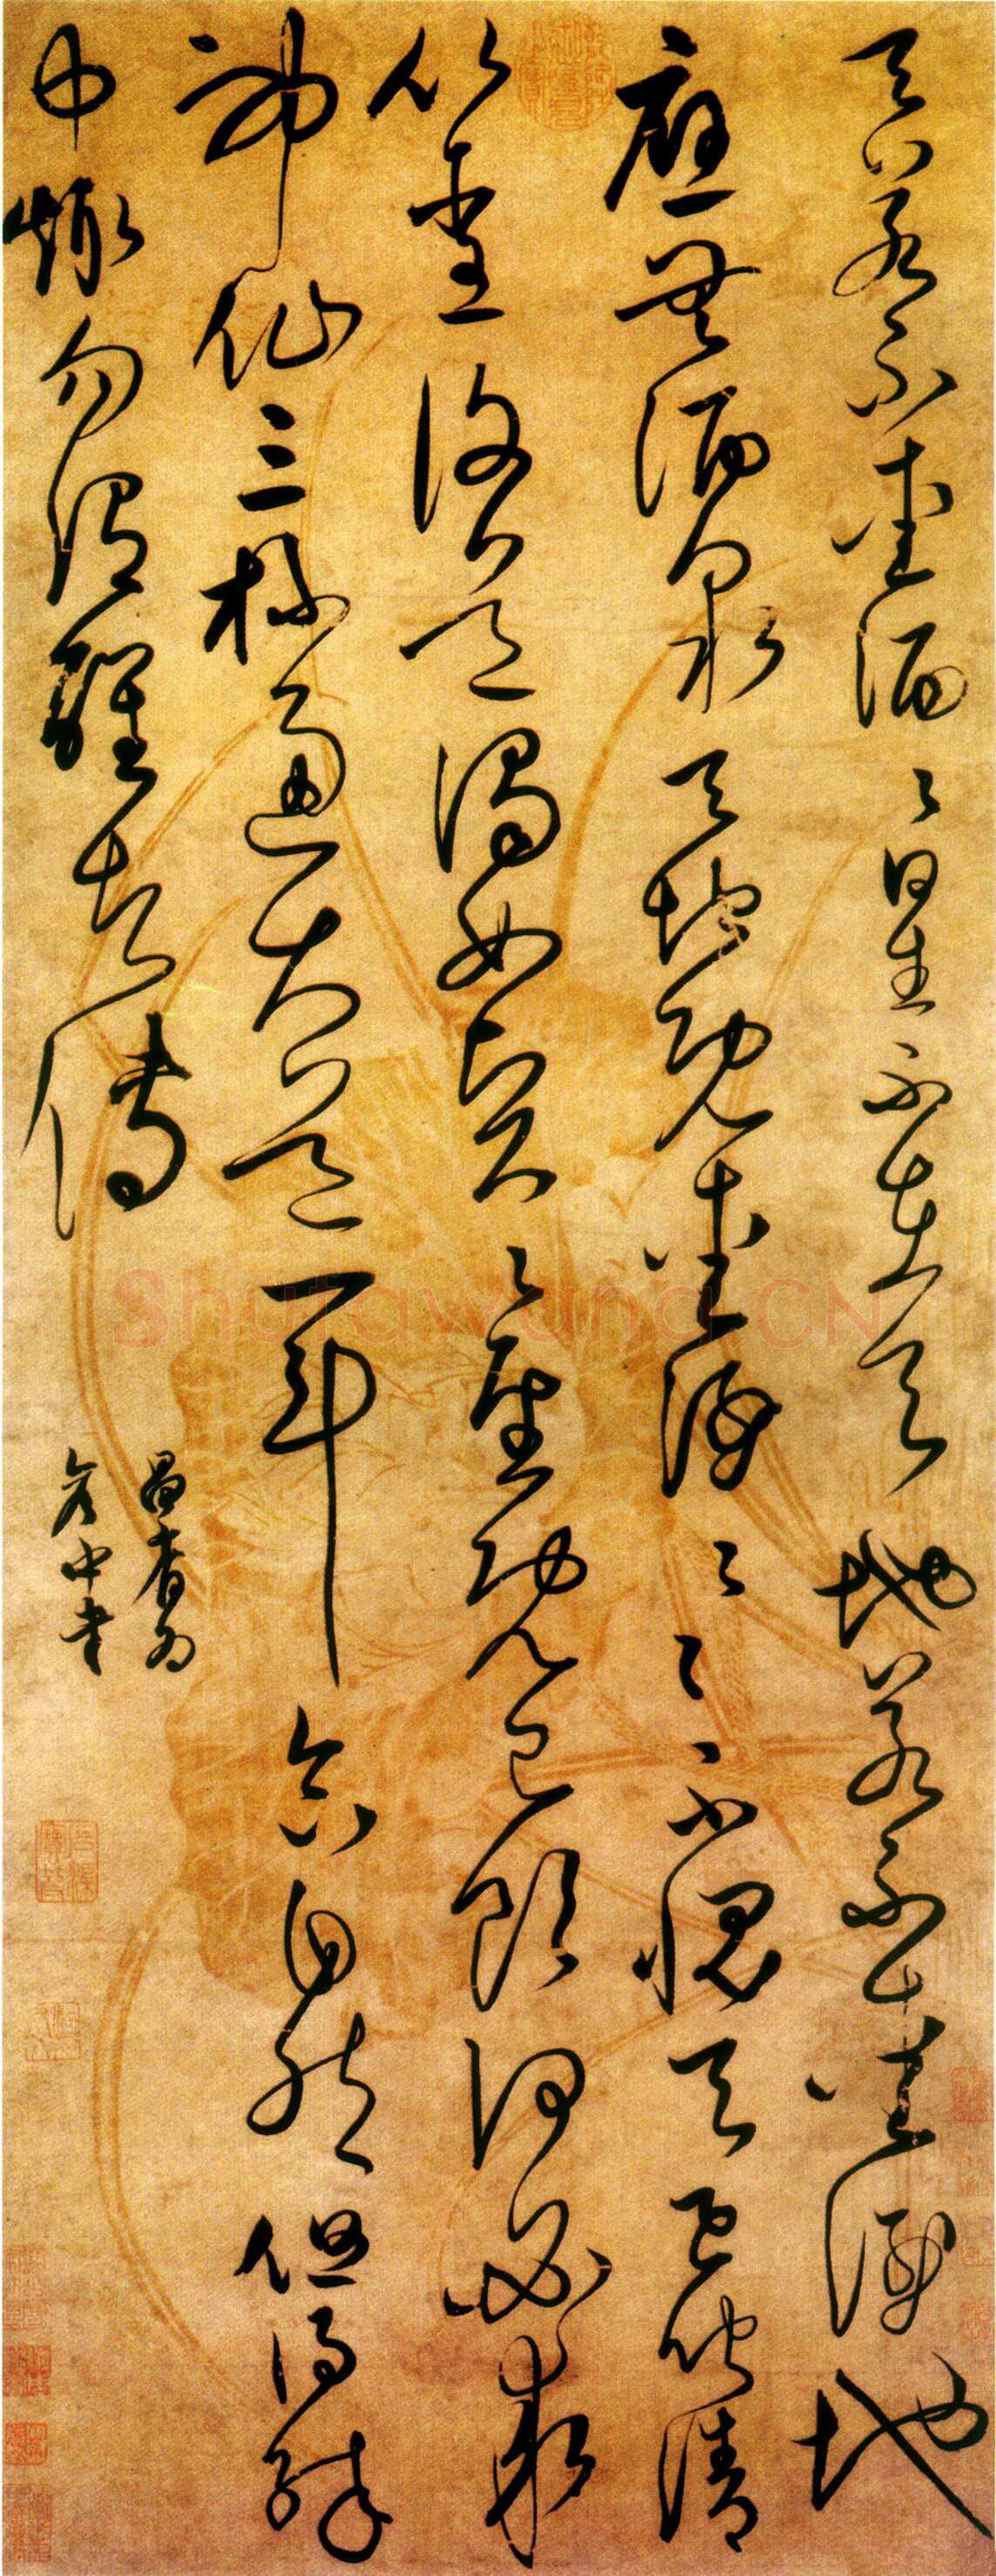 天若不愛酒〻星不在天地若不愛酒地
應無酒泉天地既愛酒〻〻不愧天已聞清
比聖復道濁如賢〻聖既已飲何必求
神仙三杯通大道一斗合自然但得醉
中趣勿謂醒者傳
昌裔為
彦中書
Shufawang.CN